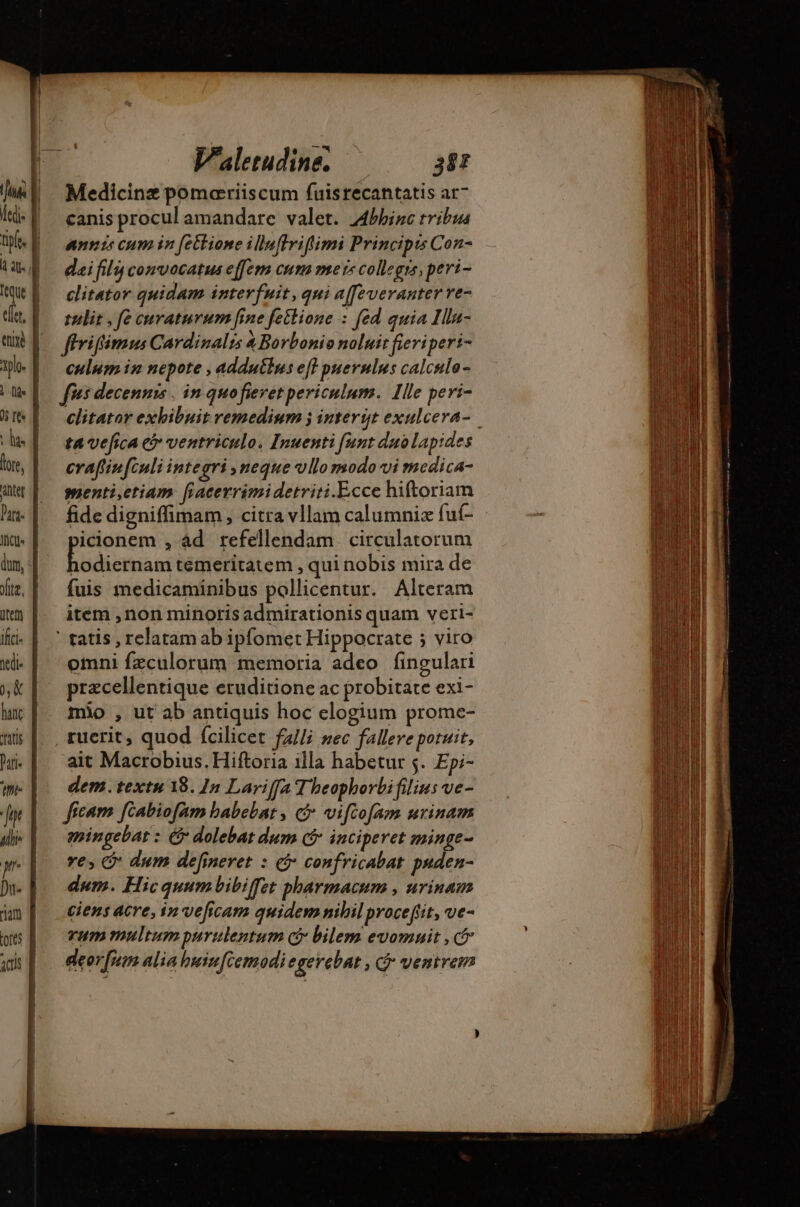 Valetudine. 381
Medicinæ pomœriis cum fuis recantatis ar-
canis procul amandare valet. Abhinc tribus
annis cum in ſectione illuſtriſſimi Principis Con-
dæi filÿ convocatus eſſem cum meis collegis, peri-
clitator quidam interfuit, qui aſſeveranter re-
tulit, ſe curaturum ſine ſectione : ſed quia Illu-
ſtriſſimus Cardinalis à Borbonio noluit fieri peri-
culum in nepote, adductus eſt puerulus calculo-
ſus decennis. in quo fieret periculum. Ille peri-
clitator exhibuit remedium ; interÿt exulcera-
ta veſica & ventriculo. Inuenti ſunt duo lapides
craſſiuſculi integri, neque vllo modo vi medica-
menti, etiam ſi acerrimi detriti. Ecce hiſtoriam
fide digniſſimam, citra vllam calumniæ ſuſ-
picionem, ad refellendam circulatorum
hodiernam temeritatem, qui nobis mira de
ſuis medicaminibus pollicentur. Alteram
item, non minoris admirationis quam veri-
tatis, relatam ab ipſomet Hippocrate ; viro
omni ſæculorum memoria adeo ſingulari
præcellentique eruditione ac probitate exi-
mio, ut ab antiquis hoc elogium prome-
ruerit, quod ſcilicet falli nec fallere potuit,
ait Macrobius. Hiſtoria illa habetur 5. Epi-
dem. textu 18. In Lariſſa Theophorbi filius ve-
ſicam ſcabioſam habebat, & viſcoſam urinam
mingebat : & dolebat dum & inciperet minge-
re, & dum deſineret : & confricabat puden-
dum. Hic quum bibiſſet pharmacum, urinam
ciens acre, in veſicam quidem nihil proceſſit, ve-
rum multum purulentum & bilem evomuit, &
deorſum alia huiuſcemodi egerebat, & ventrem